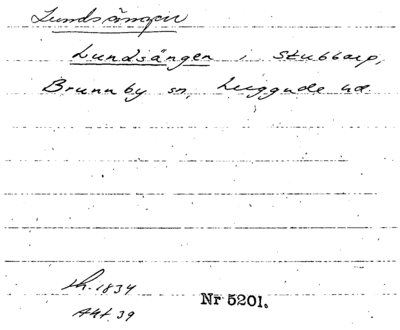 Lundsängen
Lundsängen i Stubbarp,
Brunnby sn, Luggude hd
Sk. 1834
Akt. 39
Nr 5201.